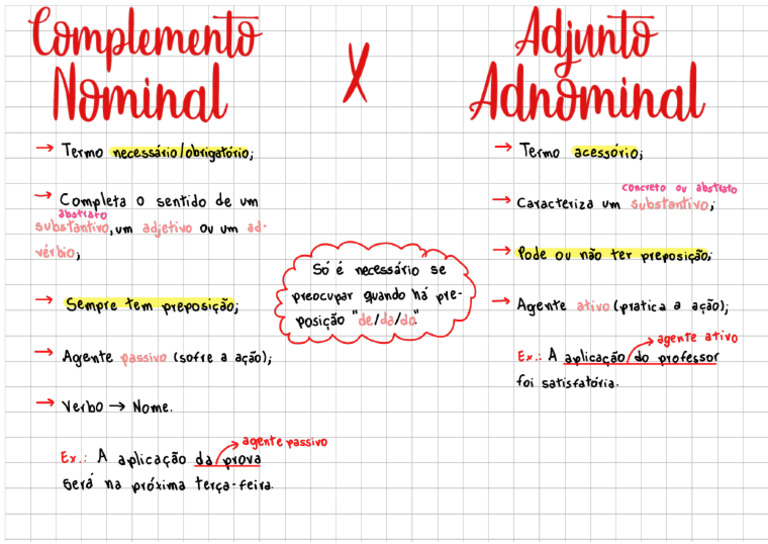 Complemento
Nominal
→ Termo necessário/obrigatório;
→ Completa o sentido de um
abstrato
substantivo, um adjetivo ou um ad-
vérbio;
→ Sempre tem preposição;
→ Agente passivo (sofre a ação);
→ Verbo → Nome.
agente passivo
Ex.: A aplicação da prova
será na próxima terça-feira.
X
Só é necessário se
preocupar quando há pre-
posição "de/da/do".
Adjunto
Adnominal
→ Termo acessório;
concreto ou abstrato
→ Caracteriza um substantivo;
→ Pode ou não ter preposição;
→ Agente ativo (pratica a ação);
agente ativo
Ex.: A aplicação do professor
foi satisfatória.